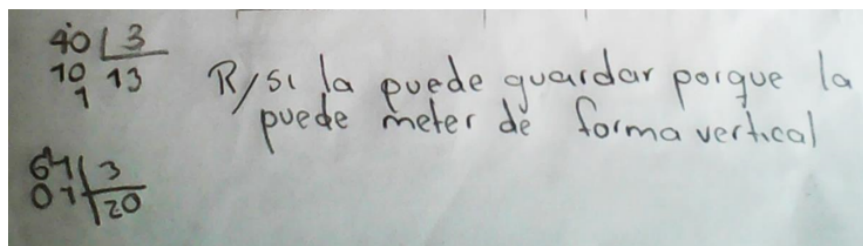 40 3
10 13
1
R/si la puede guardar porque la
puede meter de forma vertical
61 3
01 20